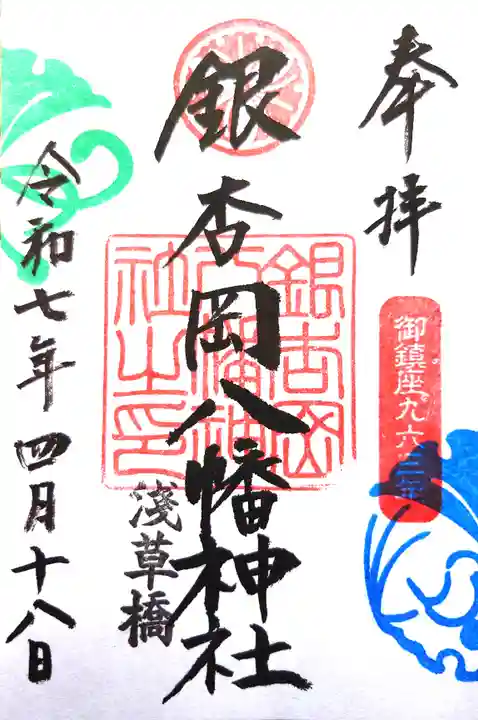 奉拝
御鎮座九六三年
銀杏岡八幡神社
浅草橋
令和七年四月十八日